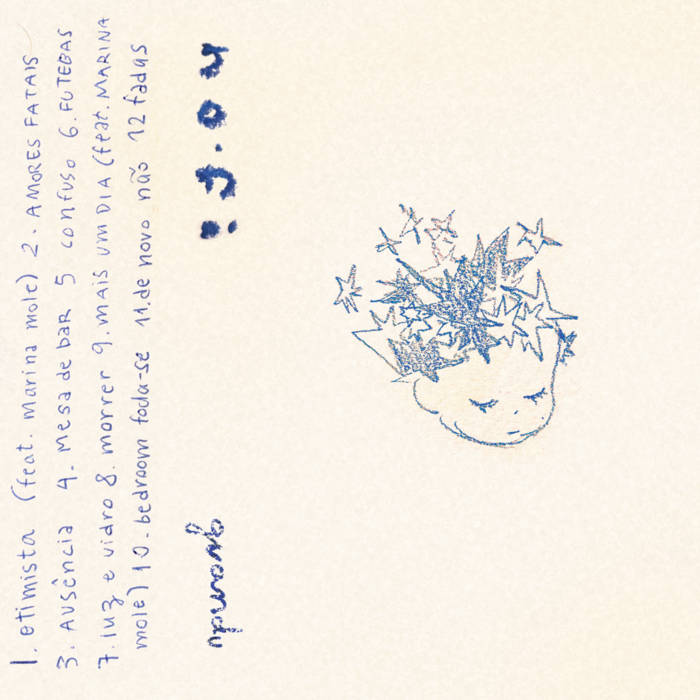 1. otimista (feat. Marina mole) 2. AMORES FATAIS
3. AUSÊNCIA 4. mesa de bar 5 confuso 6. FUTEBAS
7. luz e vidro 8. morrer 9. MAIS UM DIA (feat. MARINA
mole) 10. bedroom foda-se 11. de novo não 12 fadas